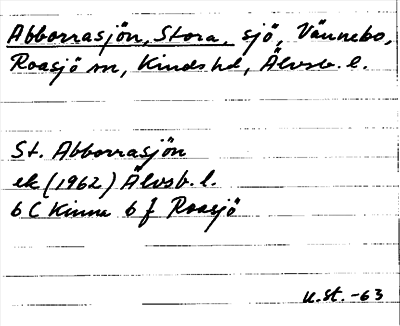 Abborrasjön, Stora, sjö, Vännebo,
Roasjö sn, Kinds hd, Älvsb. l.
St. Abborrasjön
ek (1962) Älvsb. l.
6 C Kinna 6 f Roasjö
u.st. -63